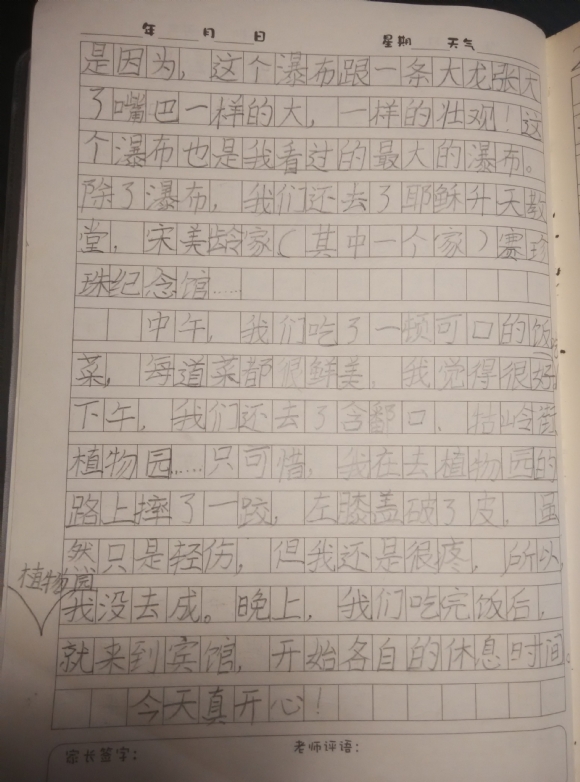 年 月 日 星期 天气
是因为，这个瀑布跟一条大龙张大
了嘴巴一样的大，一样的壮观！这
个瀑布也是我看过的最大的瀑布。
除了瀑布，我们还去了耶稣升天教
堂，宋美龄家（其中一个家）赛珍
珠纪念馆……
中午，我们吃了一顿可口的饭
菜，每道菜都很鲜美，我觉得很好
下午，我们还去了含鄱口、牯岭街
植物园……只可惜，我在去植物园的
路上摔了一跤，左膝盖破了皮，虽
然只是轻伤，但我还是很疼，所以
植物园
我没去成。晚上，我们吃完饭后，
就来到宾馆，开始各自的休息时间。
今天真开心！
家长签字： 老师评语：